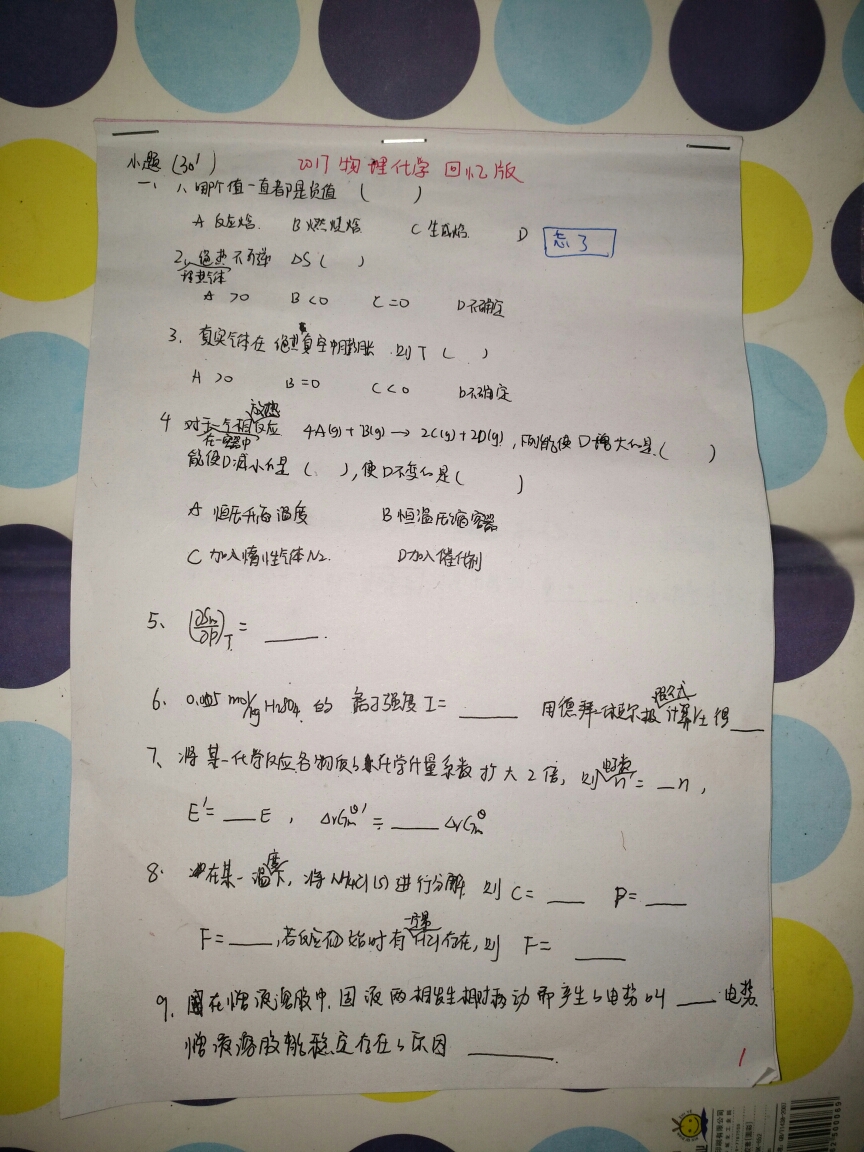 小题 (30') 2017 物理化学 回忆版
一、1、哪个值一直都是负值 ( )
A 反应焓 B 燃烧焓 C 生成焓 D 忘了
2、绝热不可逆 ΔS ( )
理想气体
A >0 B <0 C =0 D 不确定
3、真实气体在绝热真空中膨胀 则 T ( )
A >0 B =0 C <0 D 不确定
放热
4 对于一气相反应 4A(g) + B(g) → 2C(g) + 2D(g), 能使 D 增大的是 ( )
在一容器中
能使D减小的是 ( ), 使D不变的是 ( )
A 恒压升高温度 B 恒温压缩容器
C 加入惰性气体N2. D 加入催化剂
5、(∂Sm/∂p)T = ____.
6、0.005 mol/kg H2SO4 的 离子强度 I = ____ 用德拜-休克尔极 计算 γ± 得 __
限公式
7、将某一化学反应各物质的化学计量系数扩大2倍, 则 n' = __ n,
电子数
E' = __ E, ΔrGm⊖' = ____ ΔrGm⊖
8、在某一温度下, 将 NH4Cl(s) 进行分解 则 C = __ P = __
F = ___, 若反应初始时有 HCl 存在, 则 F = ___
一定量
9、在憎液溶胶中, 固液两相发生相对移动而产生的电势叫 ___ 电势
憎液溶胶能稳定存在的原因 ______.
1